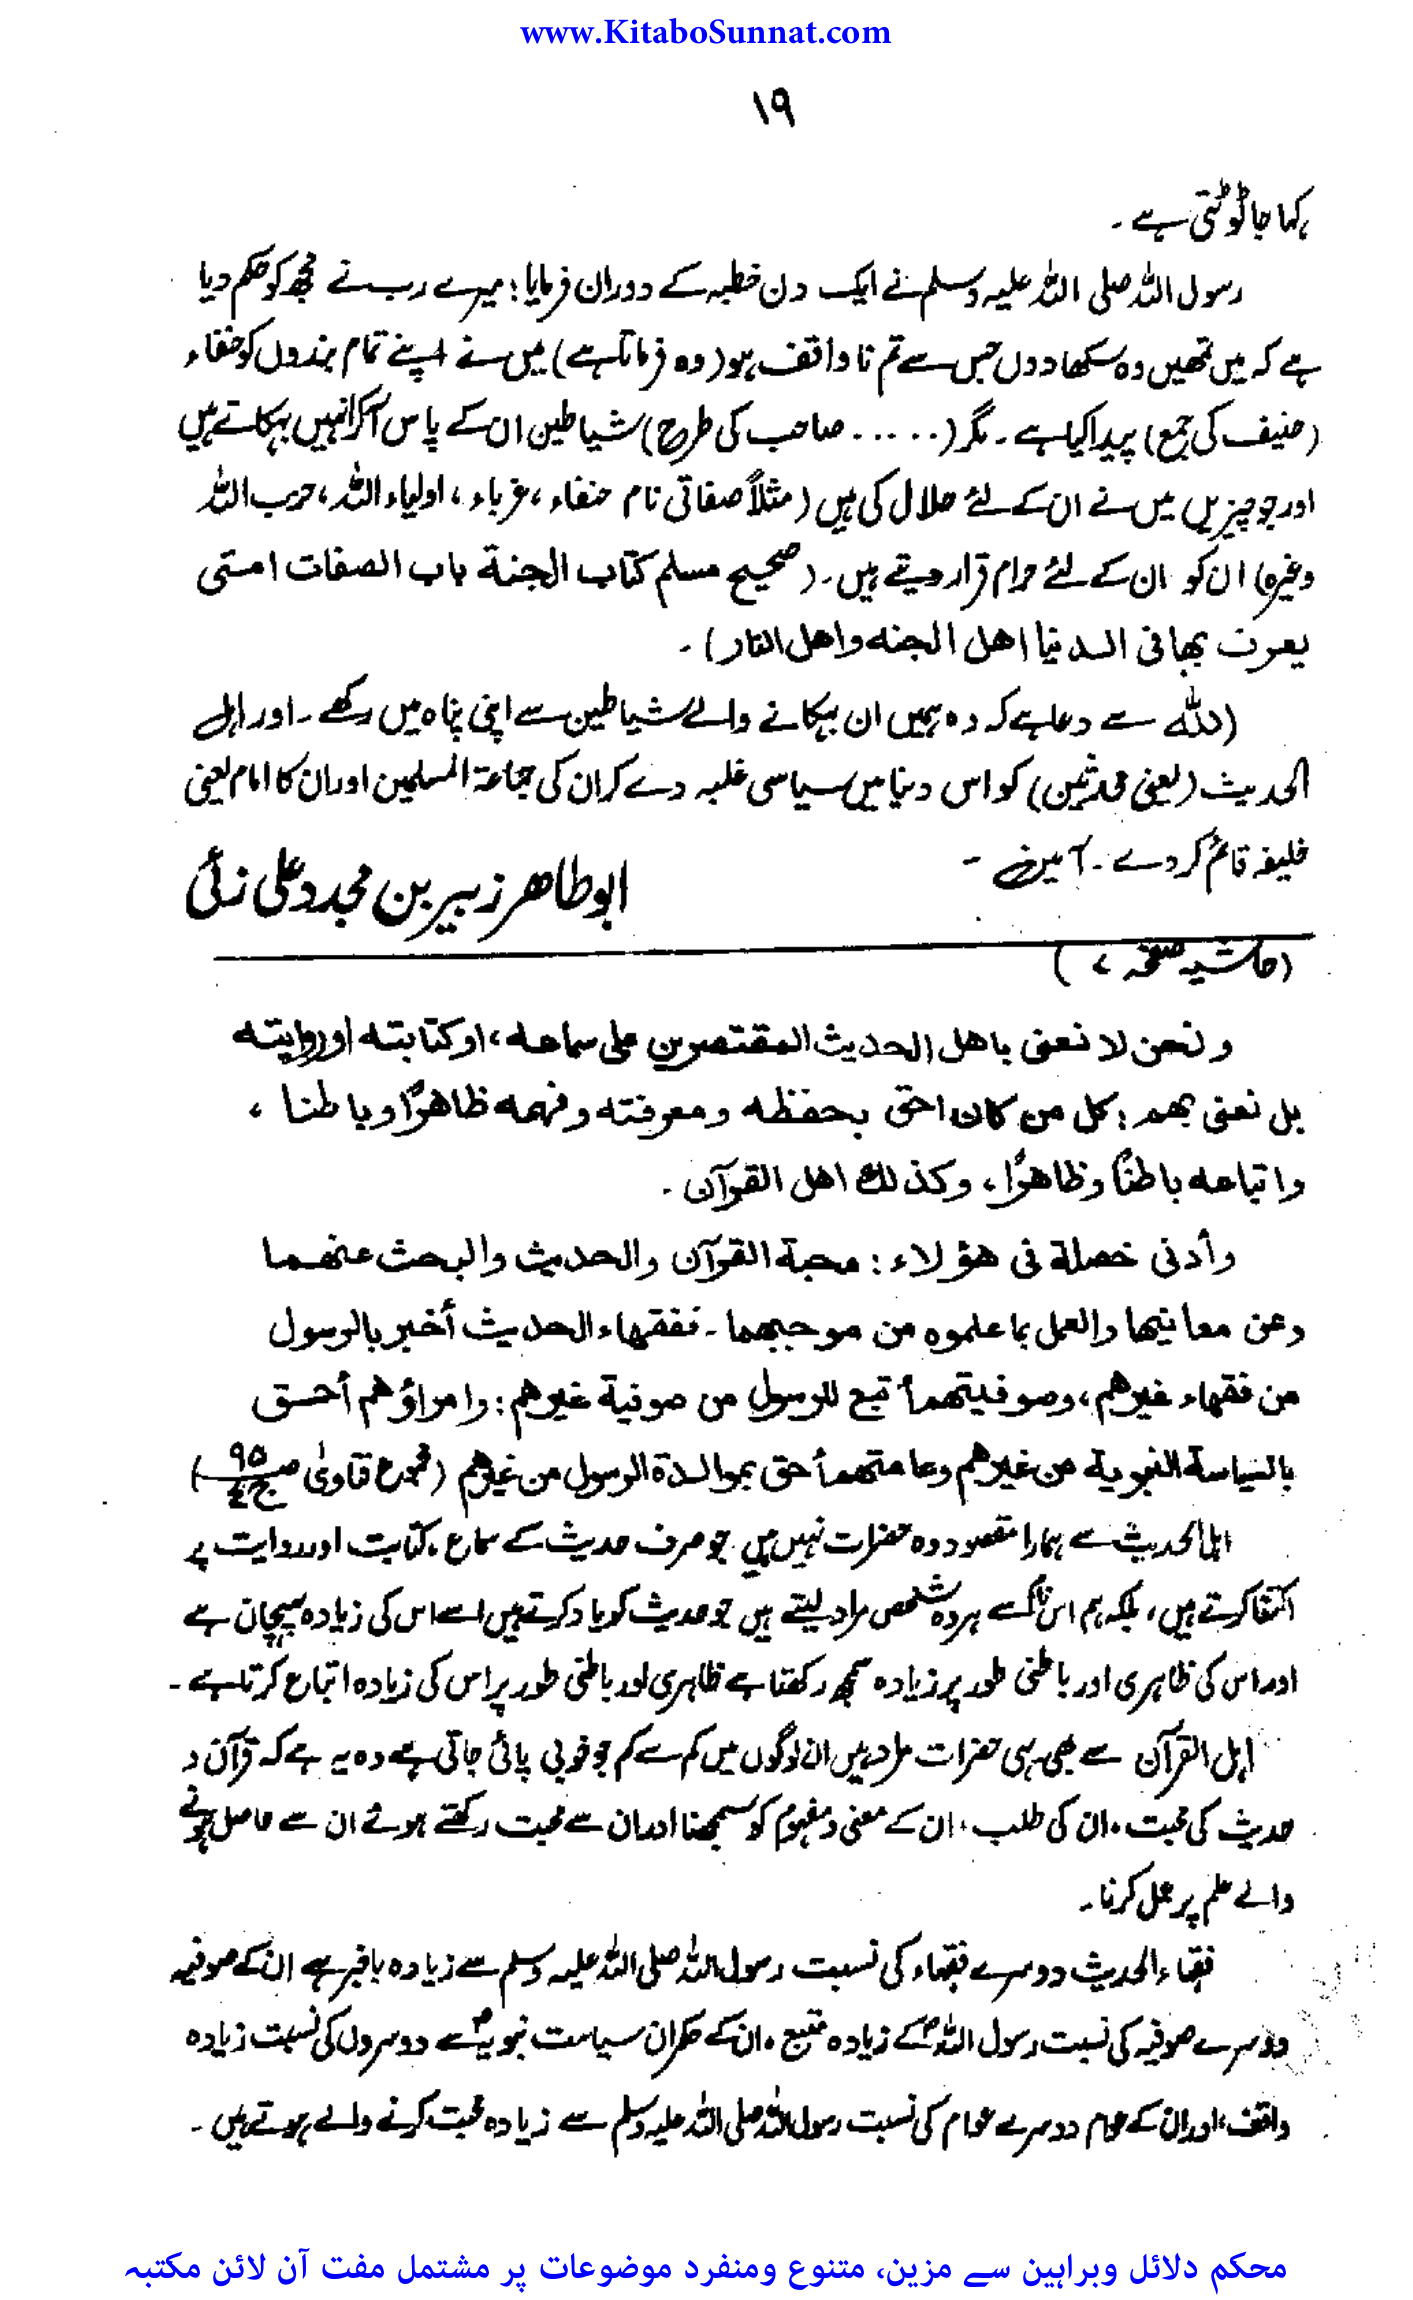 www.KitaboSunnat.com
۱۹
کہا جا سکتی ہے ۔
رسول اللہ صلی اللہ علیہ وسلم نے ایک دن خطبہ کے دوران فرمایا : میرے رب نے مجھ کو حکم دیا
ہے کہ میں تمھیں وہ سکھا دوں جس سے تم نا واقف ہو ( وہ فرماتا ہے ) میں نے اپنے تمام بندوں کو حنفاء
( حنیف کی جمع ) پیدا کیا ہے ۔ مگر ( ..... صاحب کی طرح ) شیاطین ان کے پاس آکر انہیں بہکاتے ہیں
اور جو چیزیں میں نے ان کے لئے حلال کی ہیں ( مثلاً صفاتی نام حنفاء ، غرباء ، اولیاء اللہ ، حزب اللہ
وغیرہ ) ان کو ان کے لئے حرام قرار دیتے ہیں ۔ ( صحیح مسلم کتاب الجنة باب الصفات التی
یعرف بھا فی الدنیا اھل الجنه واھل النار ) ۔
( اللہ سے دعا ہے کہ وہ ہمیں ان بہکانے والے شیاطین سے اپنی پناہ میں رکھے ۔ اور اہل
الحدیث ( یعنی محدثین ) کو اس دنیا میں سیاسی غلبہ دے کر ان کی جماعۃ المسلمین اور ان کا امام یعنی
خلیفہ قائم کر دے ۔ آمین ۔
ابو طاھر زبیر بن مجدد علی زئی
( حاشیہ صفحہ ۷ )
ونحن لا نعنی باھل الحدیث المقتصرین علی سماعه ، او کتابته اوروایته
بل نعنی بھم : کل من کان احق بحفظه ومعرفته وفهمه ظاھرًا وباطنا ،
واتباعه باطنًا وظاھرًا ، وکذلك اھل القرآن ۔
وأدنی خصلة فی ھؤلاء : محبة القرآن والحدیث والبحث عنھما
وعن معانیھا والعمل بما علموه من موجبھما ۔ ففقهاء الحدیث أخبر بالرسول
من فقهاء غیرھم ، وصوفیتھم أتبع للرسول من صوفیة غیرھم : وامراؤھم أحق
بالسیاسة النبویة من غیرھم وعامتھم أحق بموالاة الرسول من غیرھم ( مجموع فتاویٰ ص ۹۵ ج ۴ )
اہل الحدیث سے ہمارا مقصود وہ حضرات نہیں ہیں جو صرف حدیث کے سماع ، کتابت اور روایت پر
اکتفا کرتے ہیں ، بلکہ ہم اس نام سے ہر وہ شخص مراد لیتے ہیں جو حدیث کو یاد کرتے ہیں اسے اس کی زیادہ پہچان ہے
اور اس کی ظاہری اور باطنی طور پر زیادہ سمجھ رکھتا ہے ظاہری اور باطنی طور پر اس کی زیادہ اتباع کرتا ہے ۔
اہل القرآن سے بھی یہی حضرات مراد ہیں ان لوگوں میں کم سے کم جو خوبی پائی جاتی ہے وہ یہ ہے کہ قرآن و
حدیث کی محبت ، ان کی طلب ، ان کے معنی و مفہوم کو سمجھنا اور ان سے محبت رکھتے ہوئے ان سے حاصل ہونے
والے علم پر عمل کرنا ۔
فقہاء الحدیث دوسرے فقہاء کی نسبت رسول اللہ صلی اللہ علیہ وسلم سے زیادہ باخبر ہے ان کے صوفیہ
دوسرے صوفیہ کی نسبت رسول اللہؐ کے زیادہ متبع ، ان کے حکمران سیاست نبویہؐ سے دوسروں کی نسبت زیادہ
واقف ، اور ان کے عوام دوسرے عوام کی نسبت رسول اللہ صلی اللہ علیہ وسلم سے زیادہ محبت کرنے والے ہوتے ہیں ۔
محکم دلائل وبراہین سے مزین، متنوع ومنفرد موضوعات پر مشتمل مفت آن لائن مکتبہ